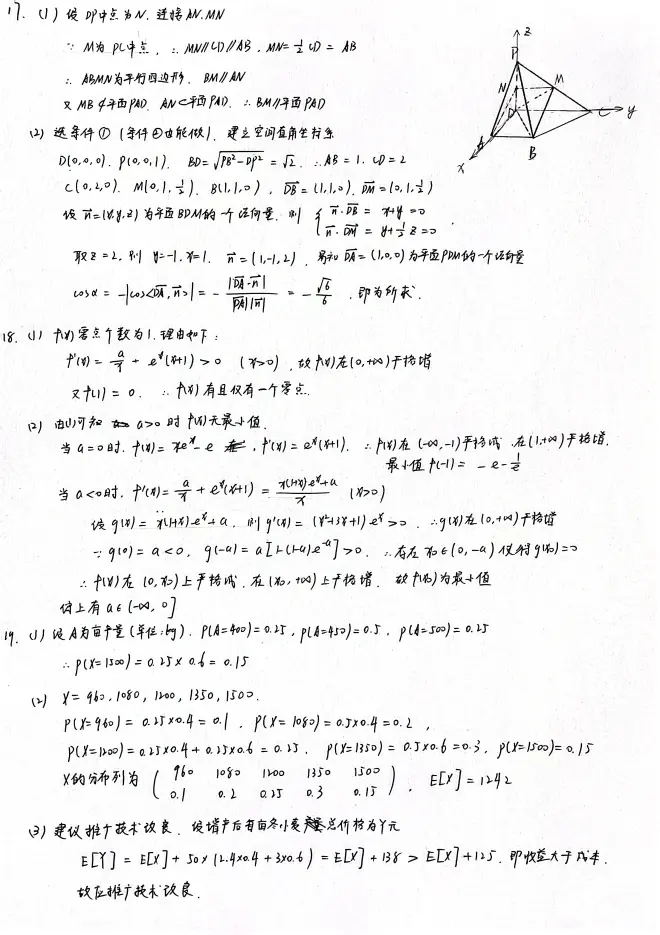 17. (1) 设DP中点为N. 连接AN.MN
∵ M为PC中点, ∴ MN∥CD∥AB, MN=½CD=AB
∴ ABMN为平行四边形. BM∥AN
又MB⊄平面PAD. AN⊂平面PAD. ∴ BM∥平面PAD
(2) 选条件① (条件②也能做). 建立空间直角坐标系
D(0,0,0). P(0,0,1). BD=√(PB²-DP²)=√2. ∴AB=1. CD=2
C(0,2,0). M(0,1,½). B(1,1,0), DB→=(1,1,0). DM→=(0,1,½)
设n→=(x,y,z)为平面BDM的一个法向量. 则 { n→·DB→ = x+y=0
n→·DM→ = y+½z=0.
取z=2, 则 y=-1. x=1. n→=(1,-1,2). 易知DA→=(1,0,0)为平面PDM的一个法向量
cosα = -|cos<DA→,n→>| = - |DA→·n→| / |DA→||n→| = - √6/6. 即为所求.
z
P
N
M
D
C
y
A
B
x
18. (1) f(x)零点个数为1. 理由如下:
f'(x) = a/x + eˣ(x+1) > 0 (x>0). 故f(x)在(0,+∞)严格增
又f(1)=0. ∴ f(x)有且仅有一个零点.
(2) 由(1)可知 a>0时f(x)无最小值.
当a=0时. f(x)=xeˣ-e, f'(x)=eˣ(x+1). ∴f(x)在(-∞,-1)严格减. 在(1,+∞)严格增.
最小值f(-1) = -e-1/e
当a<0时. f'(x) = a/x + eˣ(x+1) = (x(1+x)eˣ+a)/x (x>0)
设g(x)=x(1+x)eˣ+a. 则g'(x)=(x²+3x+1)eˣ>0. ∴g(x)在(0,+∞)严格增
∵g(0)=a<0, g(-a)=a[1-(1-a)e⁻ᵃ]>0. ∴存在x₀∈(0,-a)使得g(x₀)=0
∴ f(x)在(0,x₀)上严格减. 在(x₀,+∞)上严格增. 故f(x₀)为最小值
综上有a∈(-∞,0]
19. (1) 设A为亩产量(单位:kg). P(A=400)=0.25, P(A=450)=0.5, P(A=500)=0.25
∴ P(X=1500)=0.25×0.6=0.15
(2) X=960,1080,1200,1350,1500.
P(X=960)=0.25×0.4=0.1. P(X=1080)=0.5×0.4=0.2,
P(X=1200)=0.25×0.4+0.25×0.6=0.25. P(X=1350)=0.5×0.6=0.3. P(X=1500)=0.15
X的分布列为 ( 960 1080 1200 1350 1500
0.1 0.2 0.25 0.3 0.15 ), E[X]=1242
(3) 建议推广技术改良. 设增产后每亩冬小麦总价格为Y元
E[Y]=E[X]+50×(2.4×0.4+3×0.6)=E[X]+138>E[X]+125. 即收益大于成本.
故应推广技术改良.